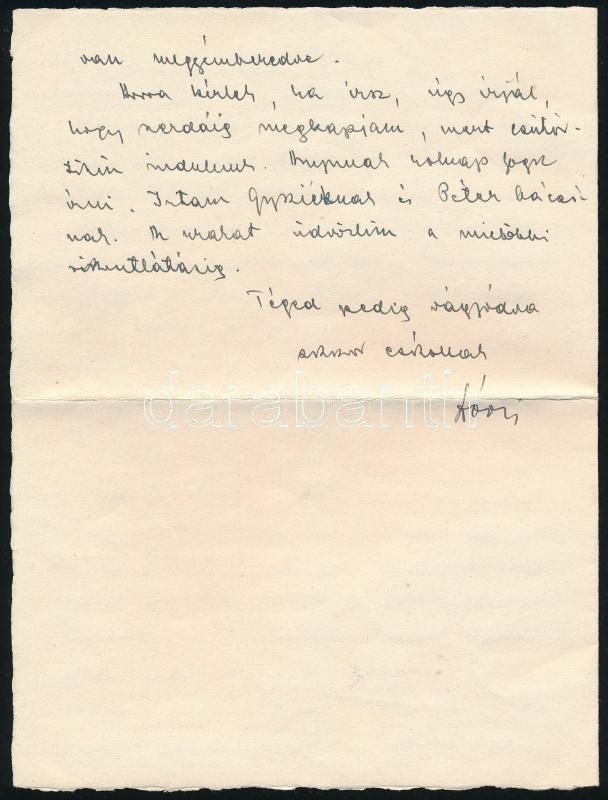 van meggémberedve.
Arra kérlek, ha írsz, úgy írjál,
hogy szerdáig megkapjam, mert csütör-
tökön indulunk. Anyunak holnap fogok
írni. Írtam és Péter bácsi-
nak. Az urakat üdvözlöm a mielőbbi
viszontlátásig.
Téged pedig vágyódva
sokszor csókollak
darabanth